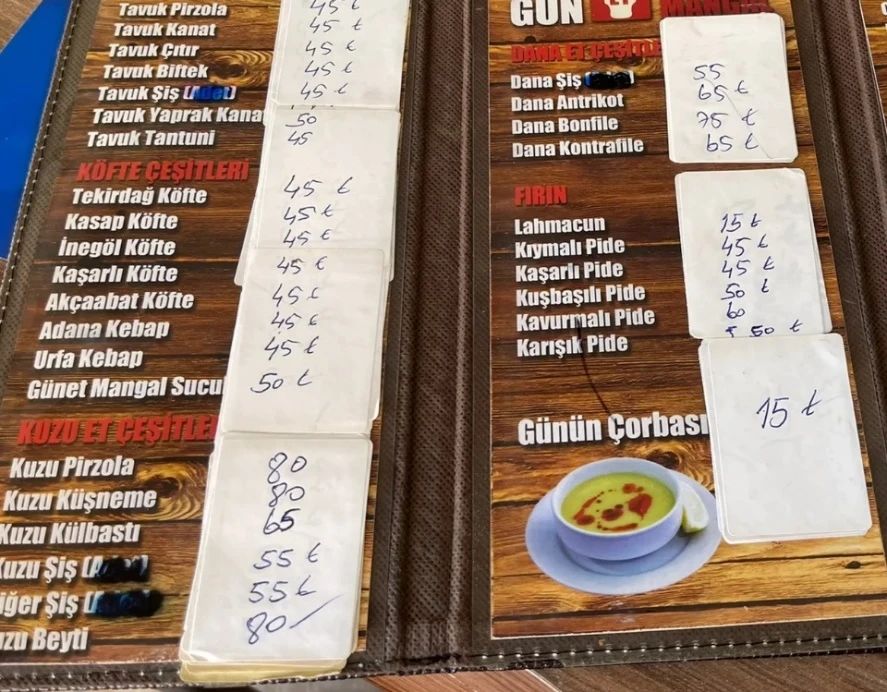 Tavuk Pirzola 45 ₺
Tavuk Kanat 45 ₺
Tavuk Çıtır 45 ₺
Tavuk Biftek 45 ₺
Tavuk Şiş (Adet) 45 ₺
Tavuk Yaprak Kanat 50
Tavuk Tantuni 45
KÖFTE ÇEŞİTLERİ
Tekirdağ Köfte 45 ₺
Kasap Köfte 45 ₺
İnegöl Köfte 45 ₺
Kaşarlı Köfte 45 ₺
Akçaabat Köfte 45 ₺
Adana Kebap 45 ₺
Urfa Kebap 45 ₺
Günet Mangal Sucu 50 ₺
KUZU ET ÇEŞİTLE
Kuzu Pirzola 80
Kuzu Küşneme 80
Kuzu Külbastı 65
Kuzu Şiş 55 ₺
iğer Şiş 55 ₺
uzu Beyti 80
GÜN MANGAL
DANA ET ÇEŞİTLE
Dana Şiş 55
Dana Antrikot 65 ₺
Dana Bonfile 75 ₺
Dana Kontrafile 65 ₺
FIRIN
Lahmacun 15 ₺
Kıymalı Pide 45 ₺
Kaşarlı Pide 45 ₺
Kuşbaşılı Pide 50 ₺
Kavurmalı Pide 60
Karışık Pide 50 ₺
Günün Çorbası 15 ₺